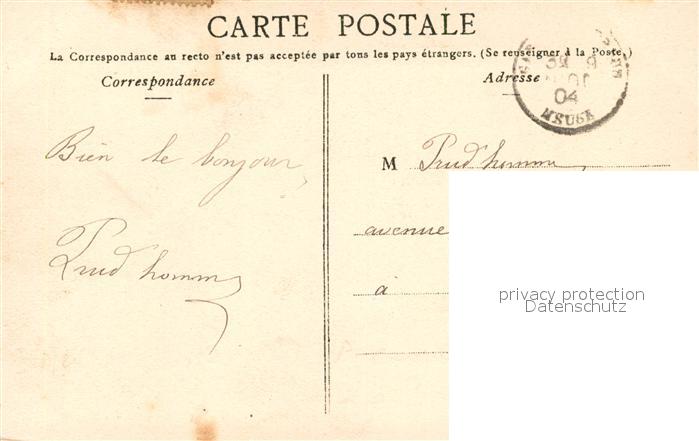 CARTE POSTALE
La Correspondance au recto n'est pas acceptée par tous les pays étrangers. (Se renseigner à la Poste.)
Correspondance
Adresse
04
MEUSE
Bien le bonjour
Prud'homme
M Prud'homme
avenue
à
privacy protection
Datenschutz